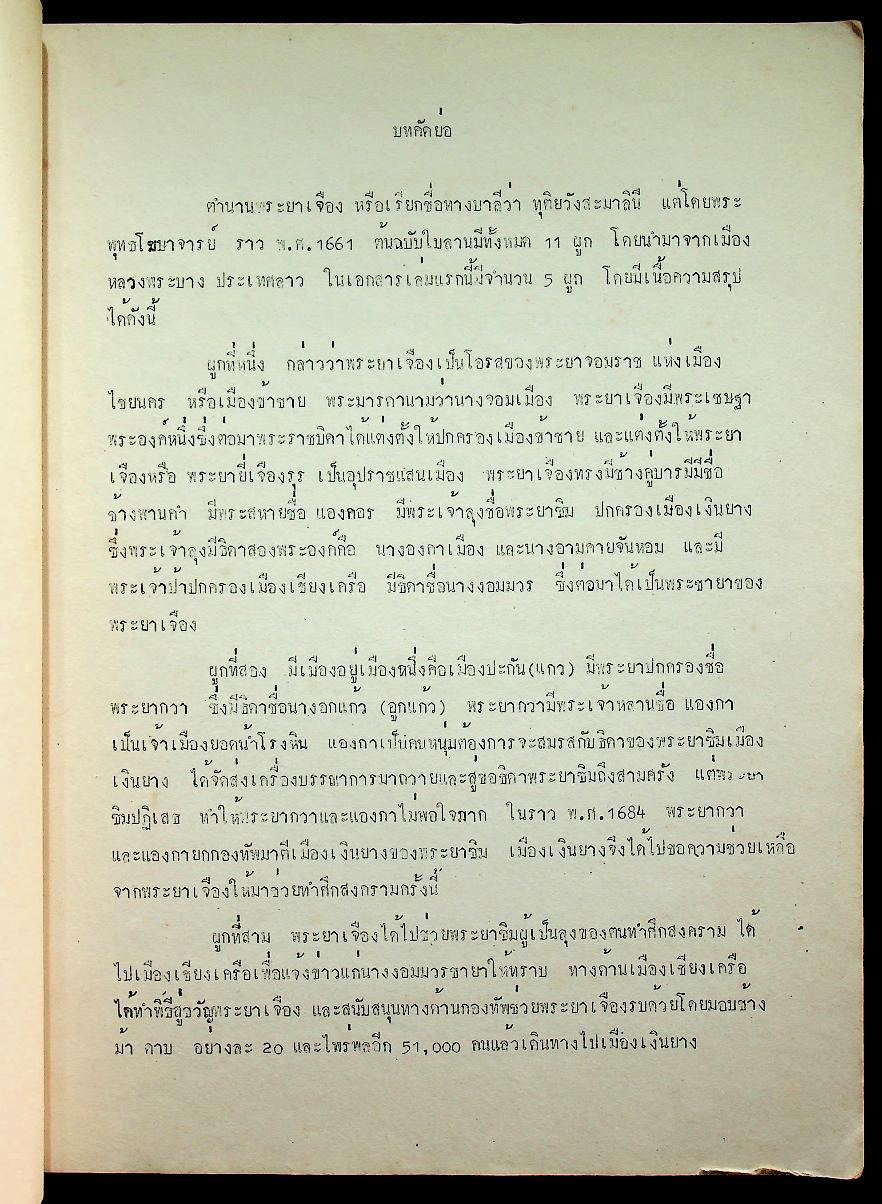 บทคัดย่อ
ตำนานพระยาเจือง หรือเรียกชื่อทางบาลีว่า ทุติยวังสะมาลินี แต่โดยพระ
พุทธโฆษาจารย์ ราว พ.ศ.1661 ต้นฉบับใบลานมีทั้งหมด 11 ผูก โดยนำมาจากเมือง
หลวงพระบาง ประเทศลาว ในเอกสารเล่มแรกนี้มีจำนวน 5 ผูก โดยมีเนื้อความสรุป
ได้ดังนี้
ผูกที่หนึ่ง กล่าวว่าพระยาเจืองเป็นโอรสของพระยาจอมราช แห่งเมือง
ไชยนคร หรือเมืองข้าชาย พระมารดานามว่านางจอมเมือง พระยาเจืองมีพระเชษฐา
พระองค์หนึ่งซึ่งต่อมาพระราชบิดาได้แต่งตั้งให้ปกครองเมืองข้าชาย และแต่งตั้งให้พระยา
เจืองหรือ พระยายี่เจืองรุร เป็นอุปราชแสนเมือง พระยาเจืองทรงมีช้างคู่บารมีมีชื่อ
ช้างพานคำ มีพระสหายชื่อ แองคอร มีพระเจ้าลุงชื่อพระยาชิม ปกครองเมืองเงินยาง
ซึ่งพระเจ้าลุงมีธิดาสองพระองค์คือ นางองคาเมือง และนางอามคายจันหอม และมี
พระเจ้าป้าปกครองเมืองเชียงเครือ มีธิดาชื่อนางงอมมวร ซึ่งต่อมาได้เป็นพระชายาของ
พระยาเจือง
ผูกที่สอง มีเมืองอยู่เมืองหนึ่งคือเมืองปะกัน(แกว) มีพระยาปกครองชื่อ
พระยากวา ซึ่งมีธิดาชื่อนางอกแก้ว (อูกแก้ว) พระยากวามีพระเจ้าหลานชื่อ แองกา
เป็นเจ้าเมืองยอดน้ำโรงหิน แองกาเป็นคนหนุ่มต้องการจะสมรสกับธิดาของพระยาชิมเมือง
เงินยาง ได้จัดส่งเครื่องบรรณาการมาถวายและสู่ขอธิดาพระยาชิมถึงสามครั้ง แต่พระยา
ชิมปฏิเสธ ทำให้พระยากวาและแองกาไม่พอใจมาก ในราว พ.ศ.1684 พระยากวา
และแองกายกกองทัพมาตีเมืองเงินยางของพระยาชิม เมืองเงินยางจึงได้ไปขอความช่วยเหลือ
จากพระยาเจืองให้มาช่วยทำศึกสงครามครั้งนี้
ผูกที่สาม พระยาเจืองได้ไปช่วยพระยาชิมผู้เป็นลุงของตนทำศึกสงคราม ได้
ไปเมืองเชียงเครือเพื่อแจ้งข่าวแก่นางงอมมวรชายาให้ทราบ ทางด้านเมืองเชียงเครือ
ได้ทำพิธีสู่ขวัญพระยาเจือง และสนับสนุนทางด้านกองทัพช่วยพระยาเจืองรบด้วยโดยมอบช้าง
ม้า ดาบ อย่างละ 20 และไพร่พลอีก 51,000 คนแล้วเดินทางไปเมืองเงินยาง